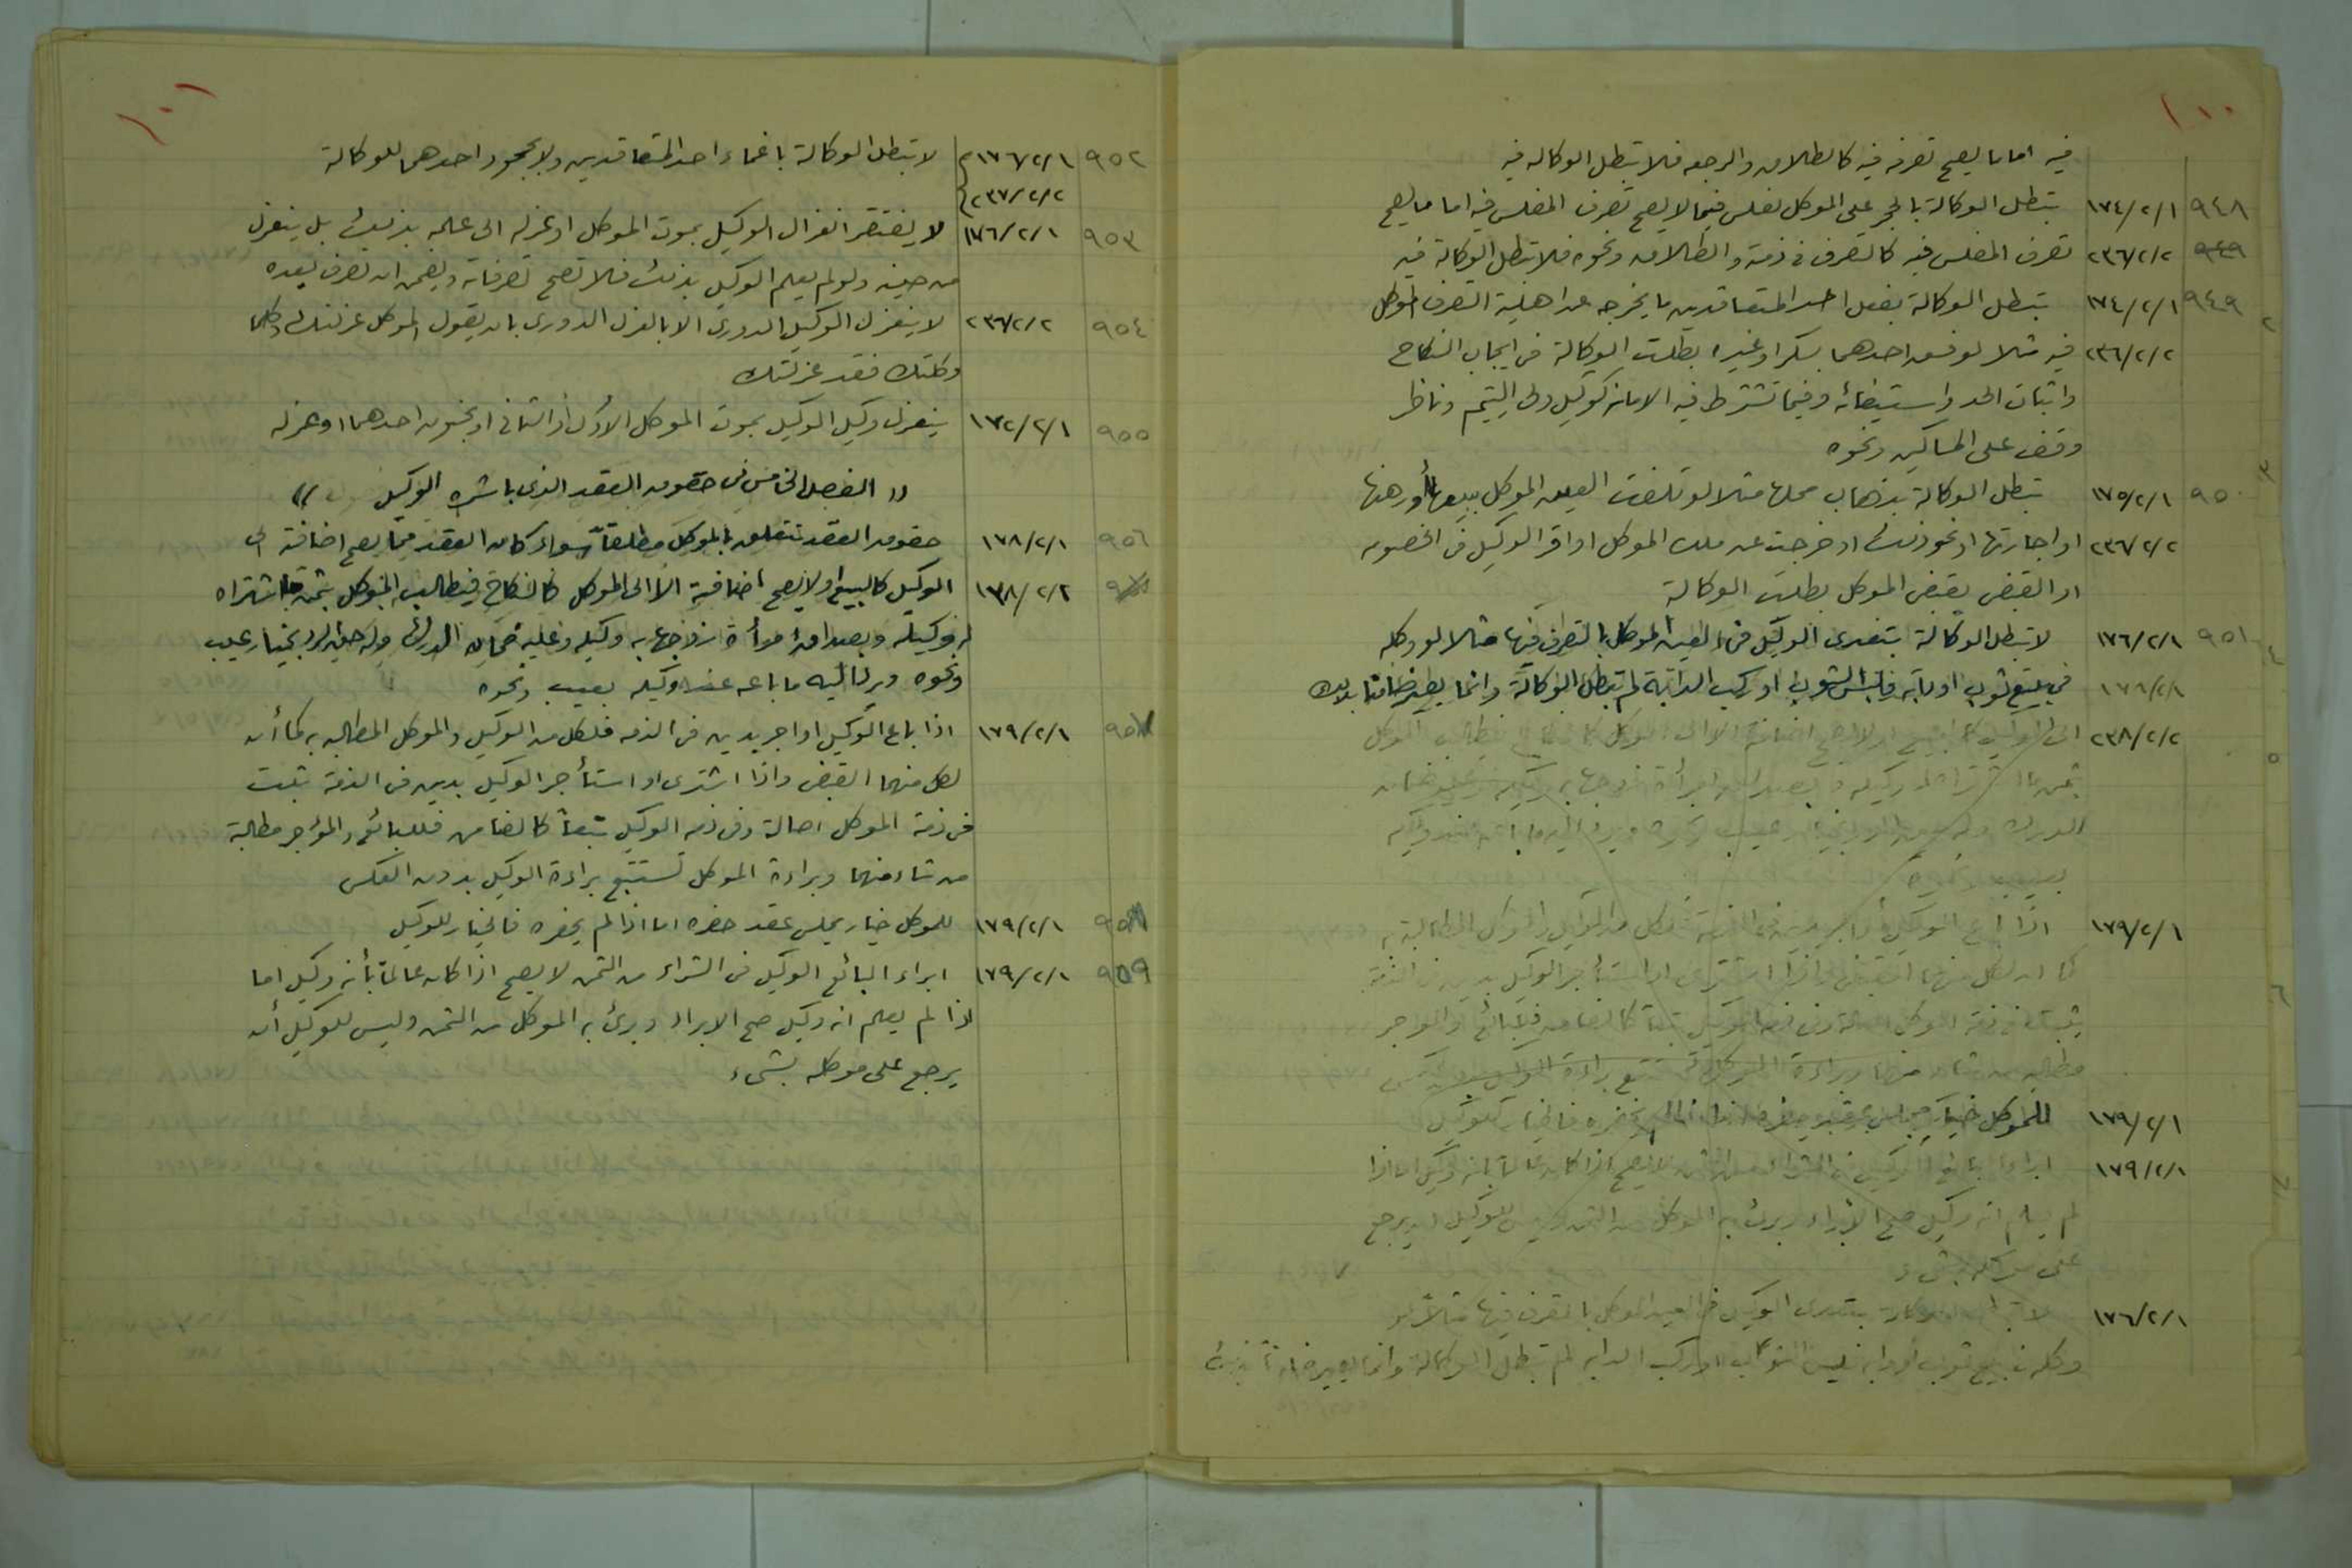 ١٠٠
فيه اما ما يصح تصرفه فيه كالطلاق والرجعه فلا تبطل الوكاله فيه
٩٤٨ ١٧٤/٢/١ تبطل الوكالة بالحجر على الموكل بفلس فيما لا يصح تصرف المفلس فيه اما ما يصح
٩٤٩ ٢٣٦/٢/٢ تصرف المفلس فيه كالتصرف في ذمته والطلاق ونحوه فلا تبطل الوكالة فيه
٩٤٩ ١٧٤/٢/١ تبطل الوكالة بفعل احد المتعاقدين ما يخرجه عن اهلية التصرف الموكل
٢٣٦/٢/٢ فيه مثلا لو فسق احدهما بسكر او غيره بطلت الوكالة في ايجاب النكاح
واثبات الحد واستيفائه وفيما تشترط فيه الامانه كوكيل ولي اليتيم وناظر
وقف على المساكين ونحوه
٩٥٠ ١٧٥/٢/١ تبطل الوكالة بذهاب محلها مثلا لو تلفت العين الموكل ببيعها أو رهنها
٢٣٦/٢/٢ او اجارتها او نحو ذلك او خرجت عن ملك الموكل او اقر الوكيل في الخصومه
او القبض بقبض الموكل بطلت الوكالة
٩٥١ ١٧٦/٢/١ لا تبطل الوكالة بتعدي الوكيل في العين الموكل بالتصرف فيها مثلا لو وكله
١٧٨/٢/١ في بيع ثوب او دابه فلبس الثوب او ركب الدابة لم تبطل الوكالة وانما يصير ضامنا بذلك
٢٣٨/٢/٢ الى الوكيل كالبيع او لا يصح اضافته الا الى الموكل كالنكاح فيطالب الموكل
بثمن ما اشتراه له وكيله وبصداق امرأة زوجها به وكيله وعليه ضمان
الدرك وله حق الرد بخيار عيب ونحوه ويرد اليه ما باعه عنه وكيله
بعيب ونحوه
١٧٩/٢/١ اذا باع الوكيل او اجر بدين في الذمة فلكل من الوكيل والموكل المطالبة به
كما ان لكل منهما القبض واذا اشترى او استأجر الوكيل بدين في الذمة
يثبت في ذمة الموكل اصالة وفي ذمة الوكيل تبعا كالضامن فللبائع والمؤجر
مطالبة من شاء منهما وبراءة الموكل تستتبع براءة الوكيل بدون العكس
١٧٩/٢/١ للموكل خيار مجلس عقد حضره اما اذا لم يحضره فالخيار للوكيل
١٧٩/٢/١ ابراء البائع الوكيل في الشراء من الثمن لا يصح اذا كان عالما بأنه وكيل اما اذا
لم يعلم انه وكيل صح الابراء وبرئ به الموكل من الثمن وليس للوكيل ان يرجع
على موكله بشيء
١٧٦/٢/١ لا تبطل الوكالة بتعدي الوكيل في العين الموكل بالتصرف فيها مثلا لو
وكله في بيع ثوب أو دابه فلبس الثوب او ركب الدابه لم تبطل الوكالة وانما يصير ضامنا بذلك
١٠١
٩٥٢ ١٧٦/٢/١ لا تبطل الوكالة باغماء احد المتعاقدين ولا بجحود احدهما للوكالة
٢٣٧/٢/٢
٩٥٣ ١٧٦/٢/١ لا يفتقر انعزال الوكيل بموت الموكل او عزله الى علمه بذلك بل ينعزل
من حينه ولو لم يعلم الوكيل بذلك فلا تصح تصرفاته ويضمن ان تصرف بعده
٩٥٤ ٢٣٦/٢/٢ لا ينعزل الوكيل الدوري الا بالعزل الدوري بان يقول الموكل عزلتك وكلما
وكلتك فقد عزلتك
٩٥٥ ١٧٢/٢/١ ينعزل وكيل الوكيل بموت الموكل الاول او الثاني او بجنون احدهما او عزله
(( الفصل الخامس في حقوق العقد الذي باشره الوكيل ))
٩٥٦ ١٧٨/٢/١ حقوق العقد تتعلق بالموكل مطلقاً سواء كان العقد مما يصح اضافته الى
١٣٨/٢/٢ الوكيل كالبيع او لا يصح اضافته الا الى الموكل كالنكاح فيطالب الموكل بثمن ما اشتراه
له وكيله وبصداق امرأة زوجها به وكيله وعليه ضمان الدرك وله حق الرد بخيار عيب
ونحوه ويرد اليه ما باعه عنه وكيله بعيب ونحوه
٩٥٧ ١٧٩/٢/١ اذا باع الوكيل او اجر بدين في الذمه فلكل من الوكيل والموكل المطالبه به كما أن
لكل منهما القبض واذا اشترى او استأجر الوكيل بدين في الذمة يثبت
في ذمة الموكل اصالة وفي ذمه الوكيل تبعاً كالضامن فللبائع والمؤجر مطالبة
من شاء منهما وبراءة الموكل تستتبع براءة الوكيل بدون العكس
٩٥٨ ١٧٩/٢/١ للموكل خيار مجلس عقد حضره اما اذا لم يحضره فالخيار للوكيل
٩٥٩ ١٧٩/٢/١ ابراء البائع الوكيل في الشراء من الثمن لا يصح اذا كان عالماً بأنه وكيل اما
اذا لم يعلم انه وكيل صح الابراء وبرئ به الموكل من الثمن وليس للوكيل أن
يرجع على موكله بشيء